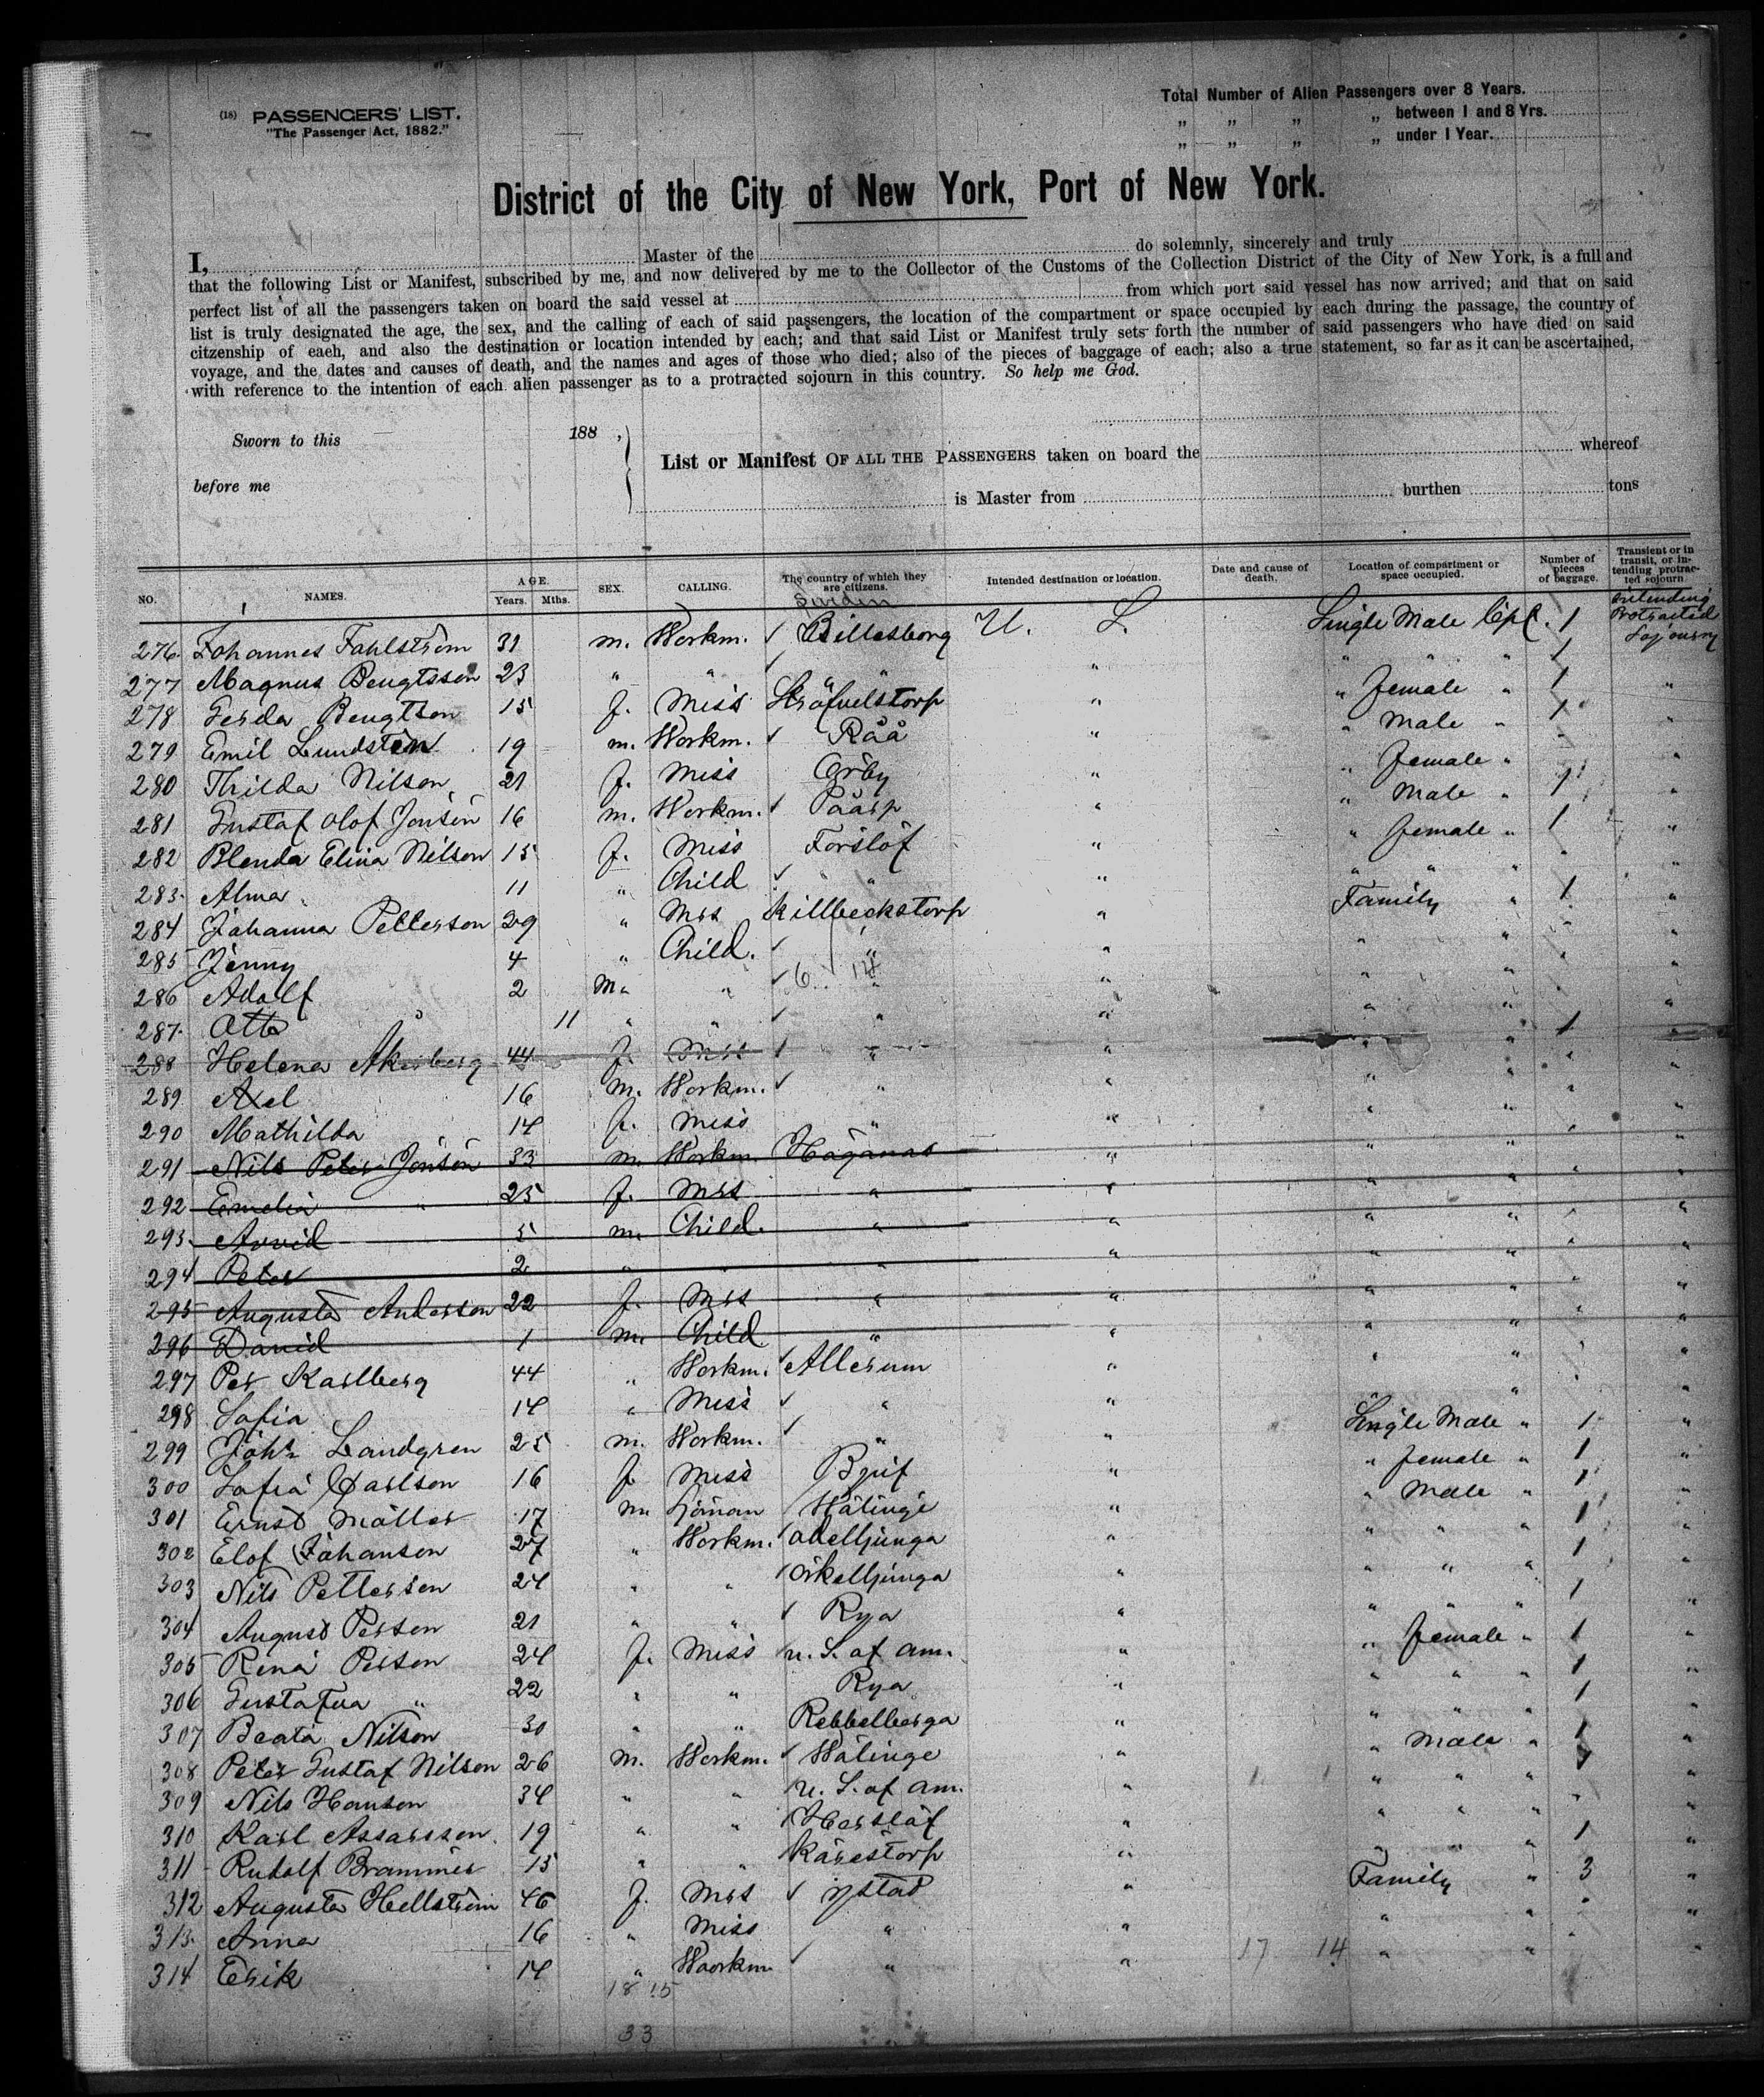 (18) PASSENGERS' LIST.
"The Passenger Act, 1882."
Total Number of Alien Passengers over 8 Years.
„ „ „ „ between 1 and 8 Yrs.
„ „ „ „ under 1 Year.
District of the City of New York, Port of New York.
I, Master of the do solemnly, sincerely and truly
that the following List or Manifest, subscribed by me, and now delivered by me to the Collector of the Customs of the Collection District of the City of New York, is a full and
perfect list of all the passengers taken on board the said vessel at from which port said vessel has now arrived; and that on said
list is truly designated the age, the sex, and the calling of each of said passengers, the location of the compartment or space occupied by each during the passage, the country of
citzenship of eaeh, and also the destination or location intended by each; and that said List or Manifest truly sets forth the number of said passengers who have died on said
voyage, and the dates and causes of death, and the names and ages of those who died; also of the pieces of baggage of each; also a true statement, so far as it can be ascertained,
with reference to the intention of each alien passenger as to a protracted sojourn in this country. So help me God.
Sworn to this 188 ,
before me
List or Manifest OF ALL THE PASSENGERS taken on board the whereof
is Master from burthen tons
NO. NAMES. AGE. Years. Mths. SEX. CALLING. The country of which they are citizens. Intended destination or location. Date and cause of death. Location of compartment or space occupied. Number of pieces of baggage. Transient or in transit, or intending protracted sojourn
Sweden
276. Johannes Fahlström 31 m. Workm. ✓ Billesborg U. S. Single Male Cpt. 1 intending Protracted Sojourn
277 Magnus Bengtsson 23 " " ✓ " " " " " 1
278 Gerda Bengtson 15 f. Miss Stöfvelstorp " " female " 1 "
279 Emil Lundstén 19 m. Workm. ✓ Råå " " Male " 1 "
280 Thilda Nilson 21 f. Miss Örby " " female "
281 Gustaf Olof Jonson 16 m. Workm. ✓ Påarp " " Male " 1 "
282 Blenda Elina Nilson 15 f. Miss Förslöf " " female " 1 "
283. Alma 11 " Child ✓ " " " " " "
284 Johanna Petterson 29 " Mrs Killbeckstorp " Family " 1 "
285 Jenny 4 " Child. ✓ " " " "
286 Adolf 2 m. " ✓ 6 14 " " " " "
287. Otto 11 " " ✓ " " " " "
288 Helena Åkerberg 44 f. Mrs ✓ " " " " 1 "
289 Axel 16 m. Workm. ✓ " " " " "
290 Mathilda 14 f. Miss " " " " "
291 Nils Peter Jonson 33 m. Workm. Höganas " " " "
292 Emelia " 25 f. Mrs " " " " "
293. Arvid 5 m. Child. " " " " "
294 Peter 2 " " " " " " "
295 Augusta Anderson 22 f. Mrs " " " " "
296 David 1 m. Child " " " " "
297 Per Karlberg 44 " Workm. ✓ Allerum " " " "
298 Sofia 14 " Miss ✓ " " " "
299 John Landgren 25 m. Workm. ✓ " " Single Male " 1 "
300 Sofia Carlson 16 f. Miss Bjuf " " female " 1 "
301 Ernst Möller 17 m. Sjöman Wälinge " " Male " 1 "
302 Elof Johanson 27 " Workm. ✓ " " " " 1 "
303 Nils Petterson 24 " " ✓ örkelljunga " " " " 1 "
304 August Person 21 " " ✓ Rya " " " " 1 "
305 Rena Person 24 f. Miss u. S. of am. " " female " 1 "
306 Gustafva " 22 " " Rya " " " " 1 "
307 Beata Nilson 30 " " Rebbelberga " " " " 1 "
308 Peter Gustaf Nilson 26 m. Workm. ✓ Wälinge " " Male " 1 "
309 Nils Hanson 34 " " u. S. of am. " " " " 1 "
310 Karl Assarsson. 19 " " Harslöf " " " " "
311 Rudolf Brammer 15 " " Kärestorp " " " " 1 "
312 Augusta Hellström 46 f. Mrs ✓ ystad " Family " 3 "
313. Anna 16 " Miss " " " " "
314 Erik 14 " Woorkm ✓ " " 17 14 " " "
18 15
33